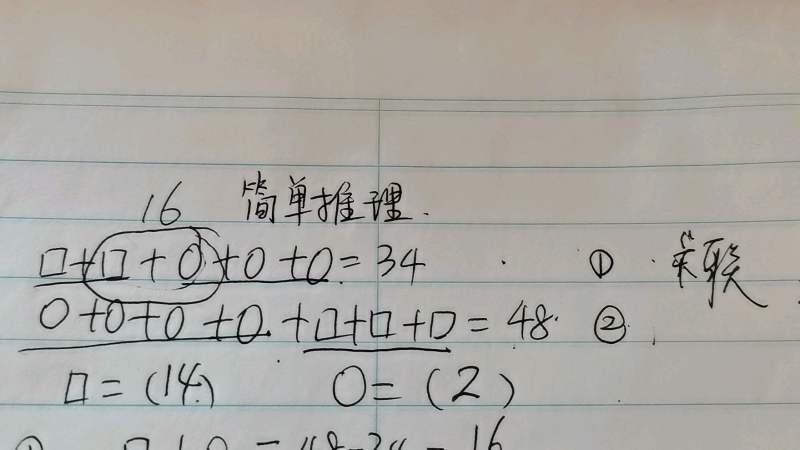 16 简单推理.
□+□+○+○+○=34 ① 关联
○+○+○+○+□+□+□=48 ②
□=(14) ○=(2)
① □+○=48-34=16